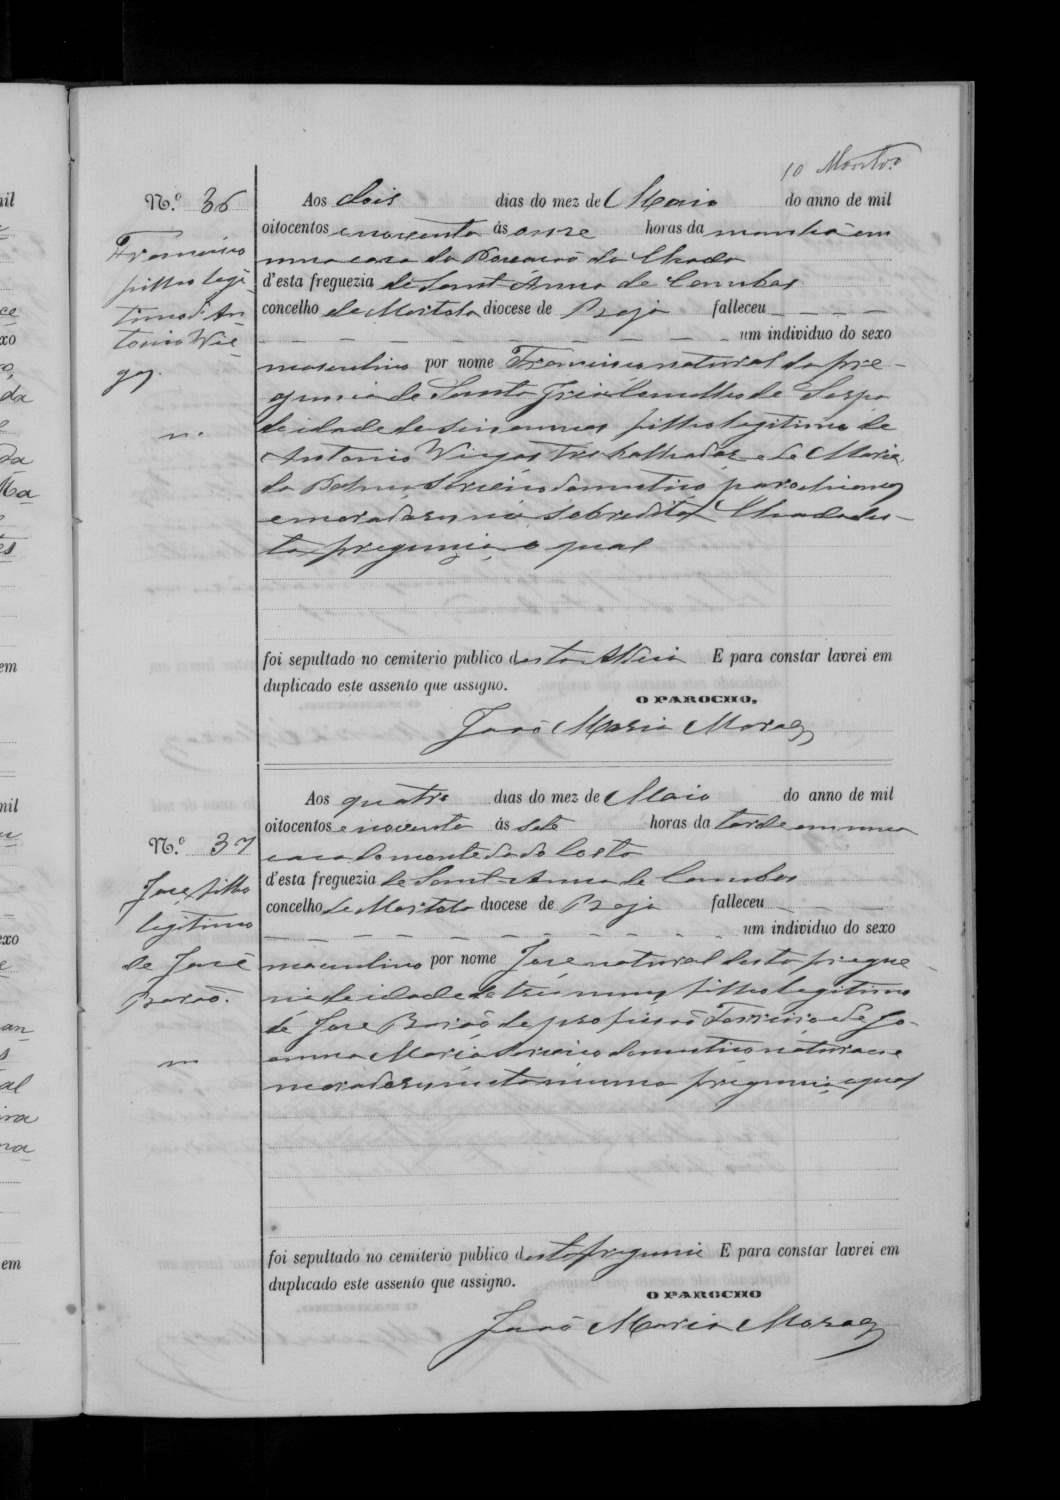 10
N.º 36
Aos dois dias do mez de Maio do anno de mil
oitocentos e noventa ás onze horas da manhã em
uma casa da da
d'esta freguezia de Sant'Anna de Cambas
concelho de Mertola diocese de Beja falleceu
um individuo do sexo
masculino por nome Francisco natural da fre-
guezia de Santa Iria concelho de Serpa
de idade de annos filho legitimo de
Antonio Viegas trabalhador e de Maria
da serviço domestico parochianos
e moradores no sobredito des-
ta freguezia o qual
foi sepultado no cemiterio publico desta Aldeia E para constar lavrei em
duplicado este assento que assigno.
O PAROCHO,
João Maria Moraes
Francisco
filho legi-
timo d'An-
tonio Vie-
gas.
N.º 37
Aos quatro dias do mez de Maio do anno de mil
oitocentos e noventa ás sete horas da tarde em uma
casa do monte da do Costa
d'esta freguezia de Sant'Anna de Cambas
concelho de Mertola diocese de Beja falleceu
um individuo do sexo
masculino por nome José natural desta fregue-
zia de idade de tres filho legitimo
de José Barão de profissão e de Jo-
anna Maria serviço domestico naturaes e
moradores nesta mesma freguezia o qual
foi sepultado no cemiterio publico desta freguezia E para constar lavrei em
duplicado este assento que assigno.
O PAROCHO
João Maria Moraes
José filho
legitimo
de José
Barão.